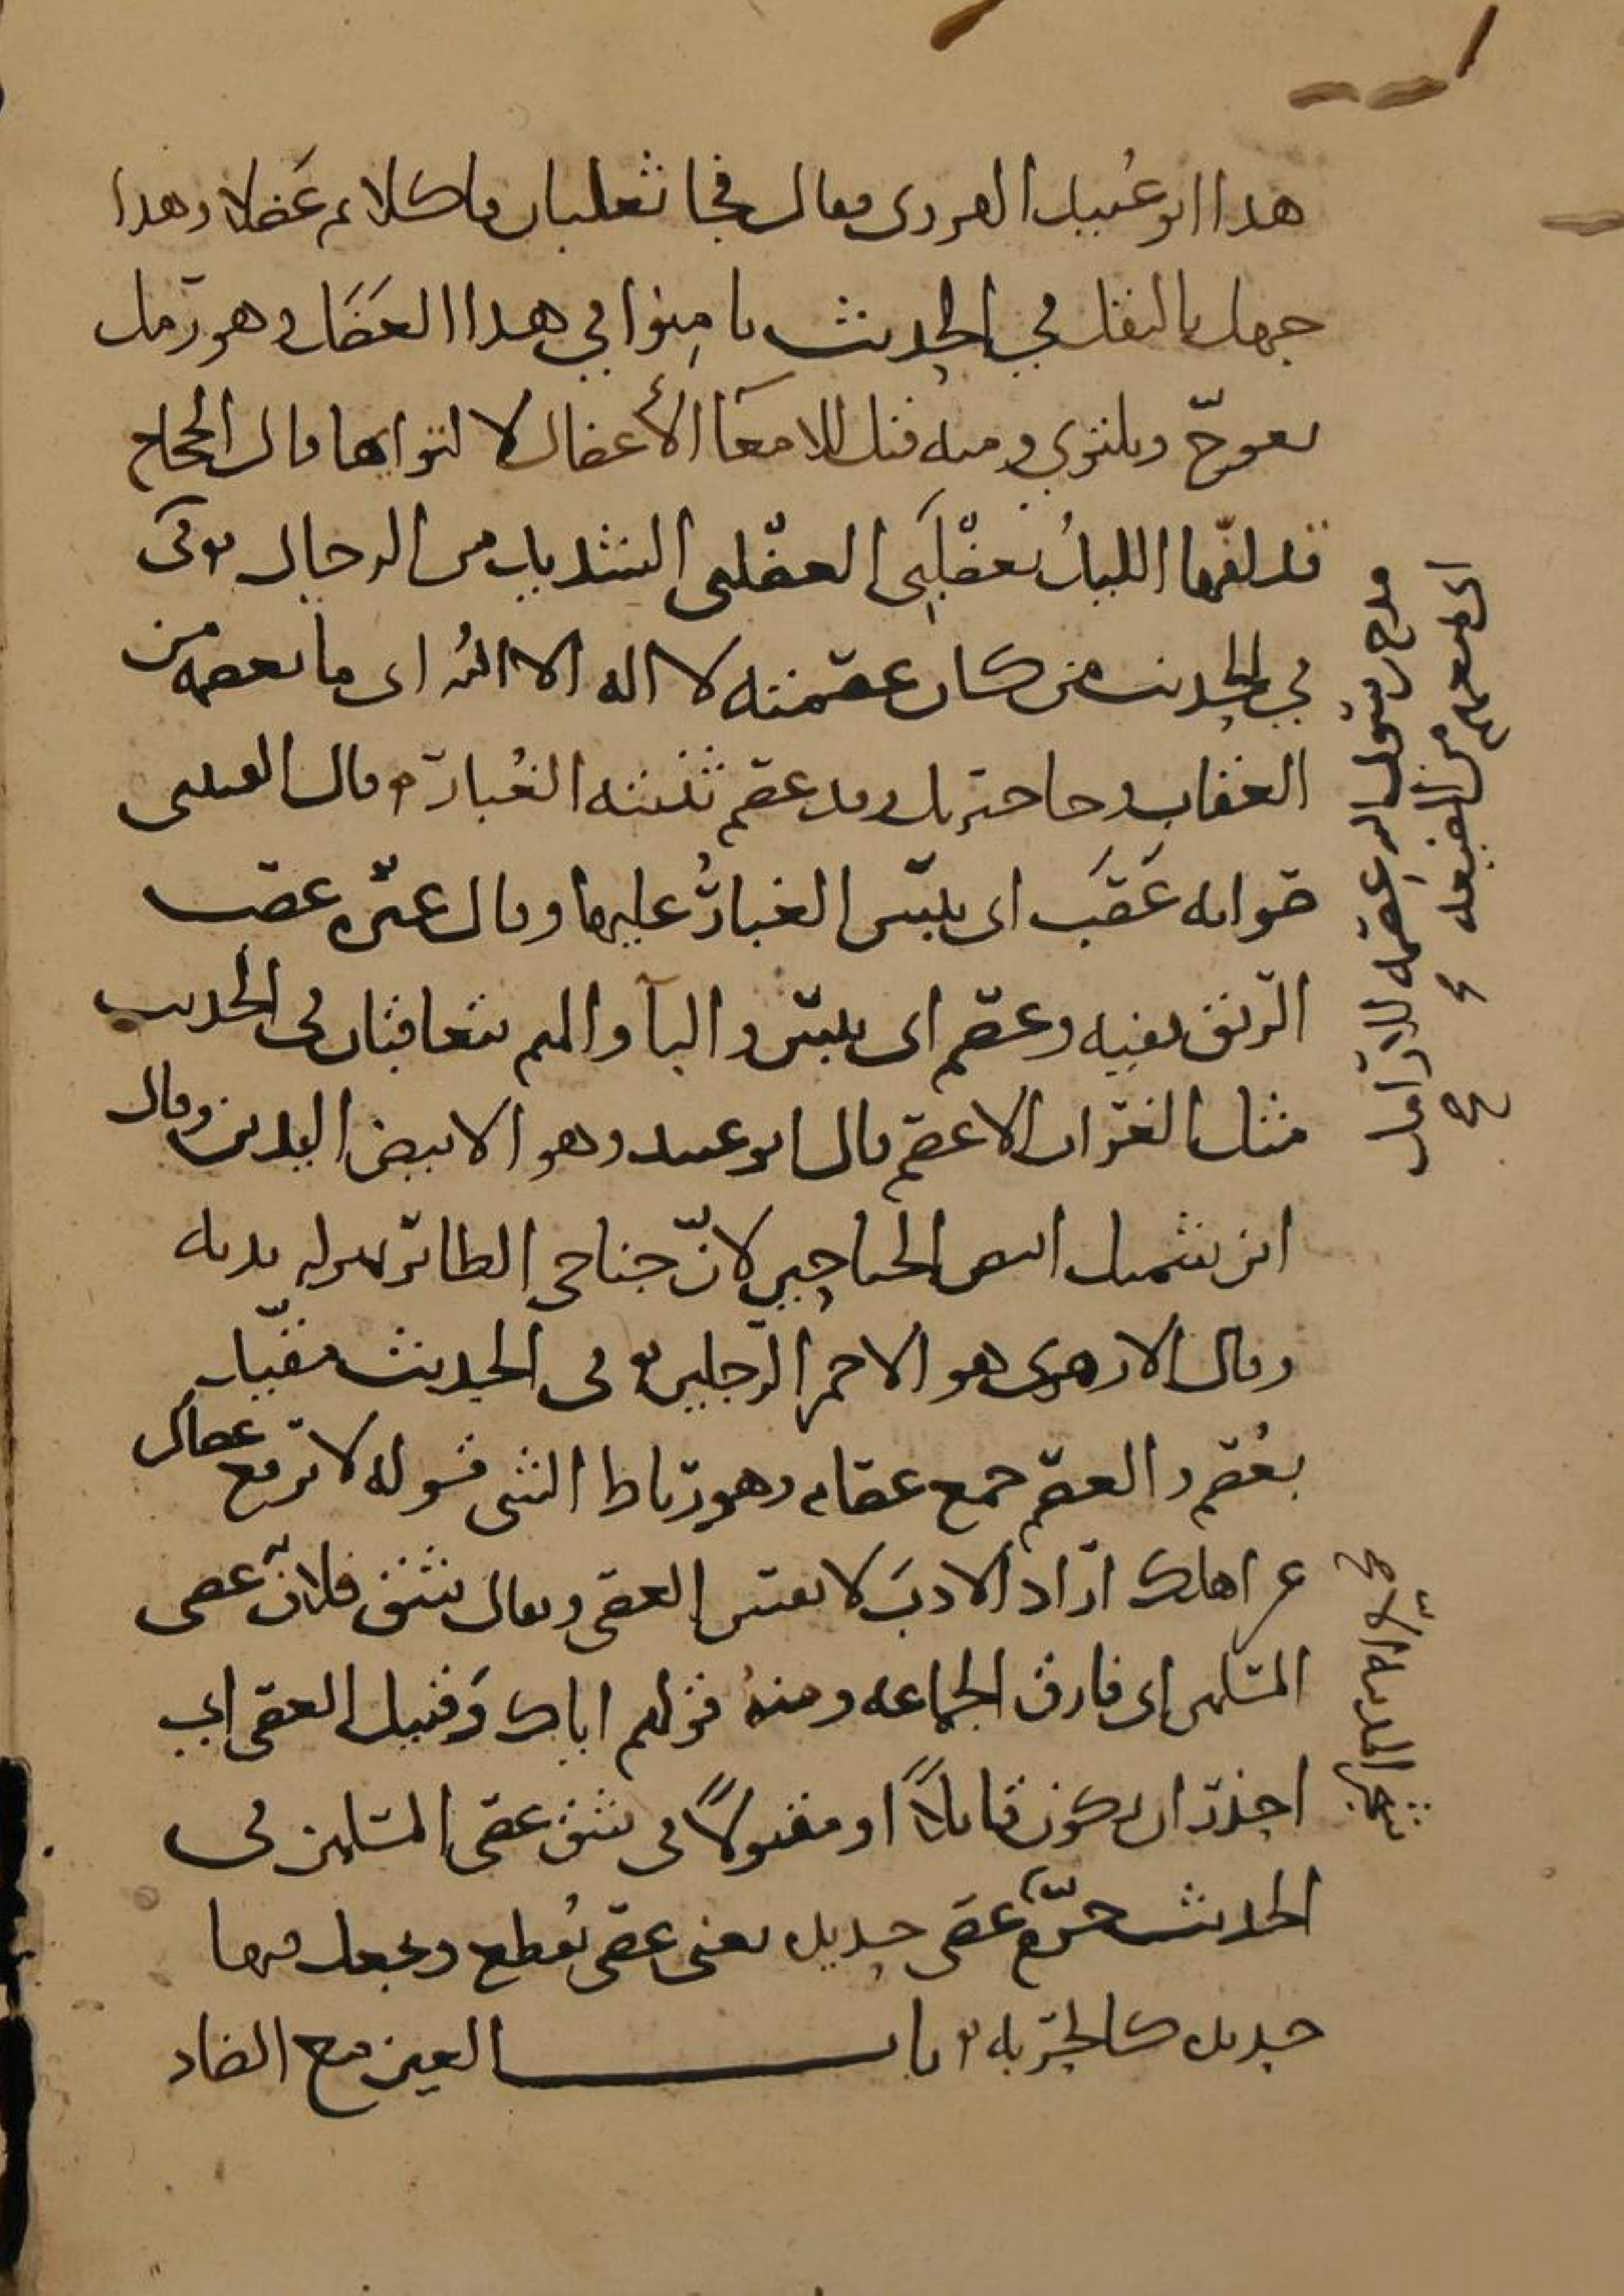 هذا ابو عبيد الهروى فقال فجا ثعلبان فاكلا م عصلا وهذا
جهل بالنقل في الحديث يامنوا في هذا العصل وهو رمل
يعوجّ ويلتوي ومنه قيل للامعآ الأعصال لالتوايها قال العجاج
قد لفّها الليلُ بعصْلَبى العصْلبى الشديد من الرجال قوله
في الحديث من كان عصمته لا اله الا الله اى ما يعصمه من
العذاب وجا جبريل وقد عصم ثنيته الغُبارُ قال القتيبى
صوابه عَصَب اى يبس الغبارُ عليها وقال غيره عصب
الريق بفيه وعصم اى يبس والبآ والميم يتعاقبان في الحديث
مثل الغراب الاعصم قال ابو عبيد وهو الابيض اليدين وقال
ابن شميل ابيض الجناحين لانّ جناحى الطائر بمنزله يديه
وقال الازهرى هو الاحمر الرجلين في الحديث مقيّد
بعُصم والعصم جمع عصام وهو رباط الشى قوله لا ترفع عصاك
عن اهلك اراد الادبَ لا نفس العصى ويقال شق فلانٌ عصى
المسلمين اى فارق الجماعه ومنهُ قولهم اياك وَقتيل العصى اي
احذر ان يكون قاتلاً او مقتولاً في شق عصى المسلمين في
الحديث حرّم عصى حديد يعنى عصى تُقطع ويجعل فيها
حديد كالحربه باب العين مع الضاد
مدح رسول الله عصمه للارامل
اى يمنعهم من الضيعه